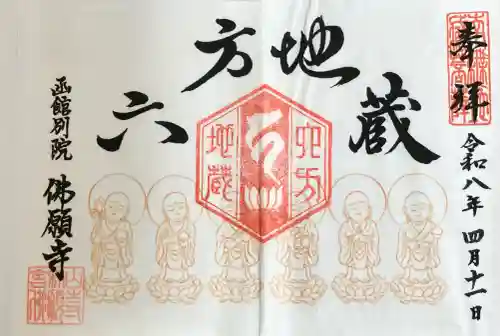 奉拝
令和八年 四月十一日
六方地蔵
六方
地蔵
函館別院
佛願寺